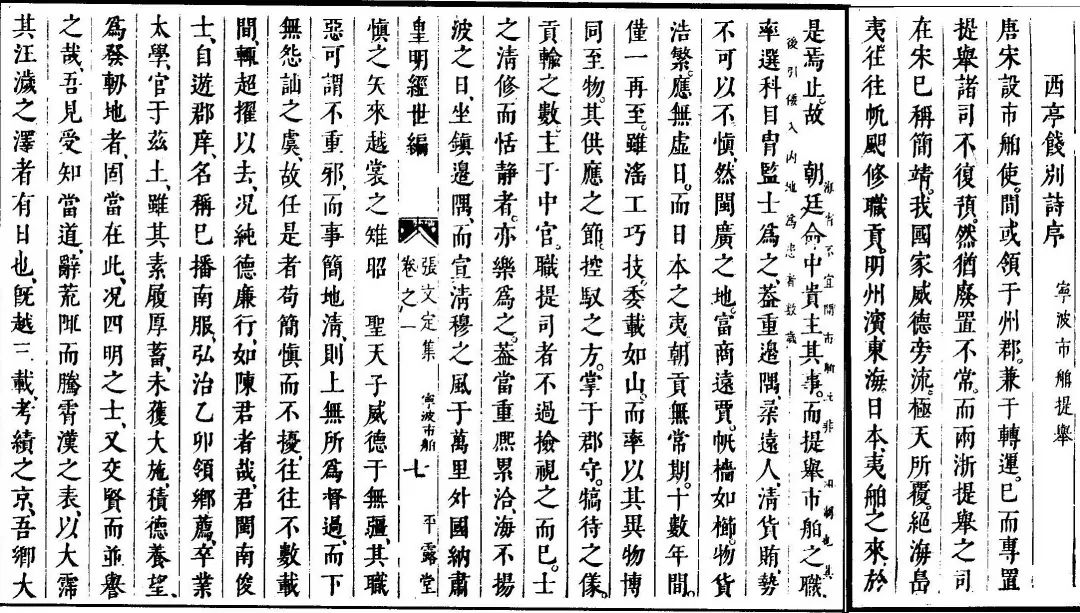 西亭餞別詩序 寧波市舶提舉
唐宋設市舶使。間或領于州郡。兼于轉運。已而專置
提舉諸司不復預。然猶廢置不常。而兩浙提舉之司
在宋已稱簡靖。我國家威德旁流。極天所覆。絕海島
夷往往帆颶修職貢。明州濱東海。日本夷舶之來。於
是焉止。故 朝廷命中貴主其事。而提舉市舶之職
率選科目胄監士爲之。葢重邊隅。柔遠人。清貨賄。勢
不可以不慎。然閩廣之地。富商遠賈。帆檣如櫛。物貨
浩繁。應無虛日。而日本之夷。朝貢無常期。十數年間。
僅一再至。雖滛工巧技。委載如山。而率以其異物博
同至物。其供應之節。控馭之方。掌于郡守。犒待之儀。
貢輸之數。主于中官。職提司者不過檢視之而已。士
之清修而恬靜者。亦樂爲之。葢當重熈累洽。海不揚
波之日。坐鎮邊隅。而宣清穆之風于萬里外國納肅
皇明經世編 張文定集 卷之一 寧波市舶 七 平露堂
慎之矢來越裳之雉昭 聖天子威德于無疆。其職
惡可謂不重邪。而事簡地清。則上無所爲督過。而下
無怨訕之虞。故任是者苟簡慎而不擾。往往不數載
間。輒超擢以去。况純德廉行。如陳君者哉。君閩南俊
士。自遊郡庠。名稱已播南服。弘治乙卯領鄉薦。卒業
太學。官于茲土。雖其素履厚蓄。未獲大施。積德養望。
爲發軔地者。固當在此。况四明之士。又交賢而並譽
之哉。吾見受知當道。辭荒陬而騰霄漢之表。以大霈
其汪濊之澤者有日也。旣越三載。考績之京。吾鄉大